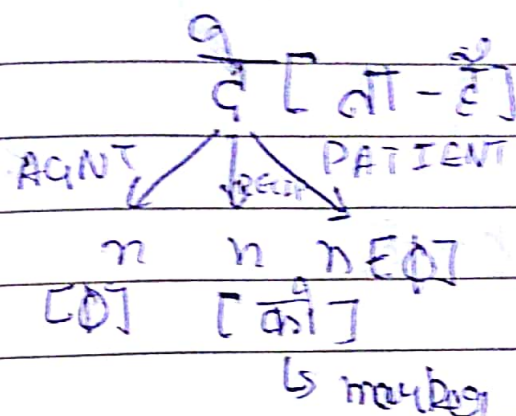 दे [ता-है]
AGNT RECIP PATIENT
n n n [φ]
[φ] [को]
↳ marking